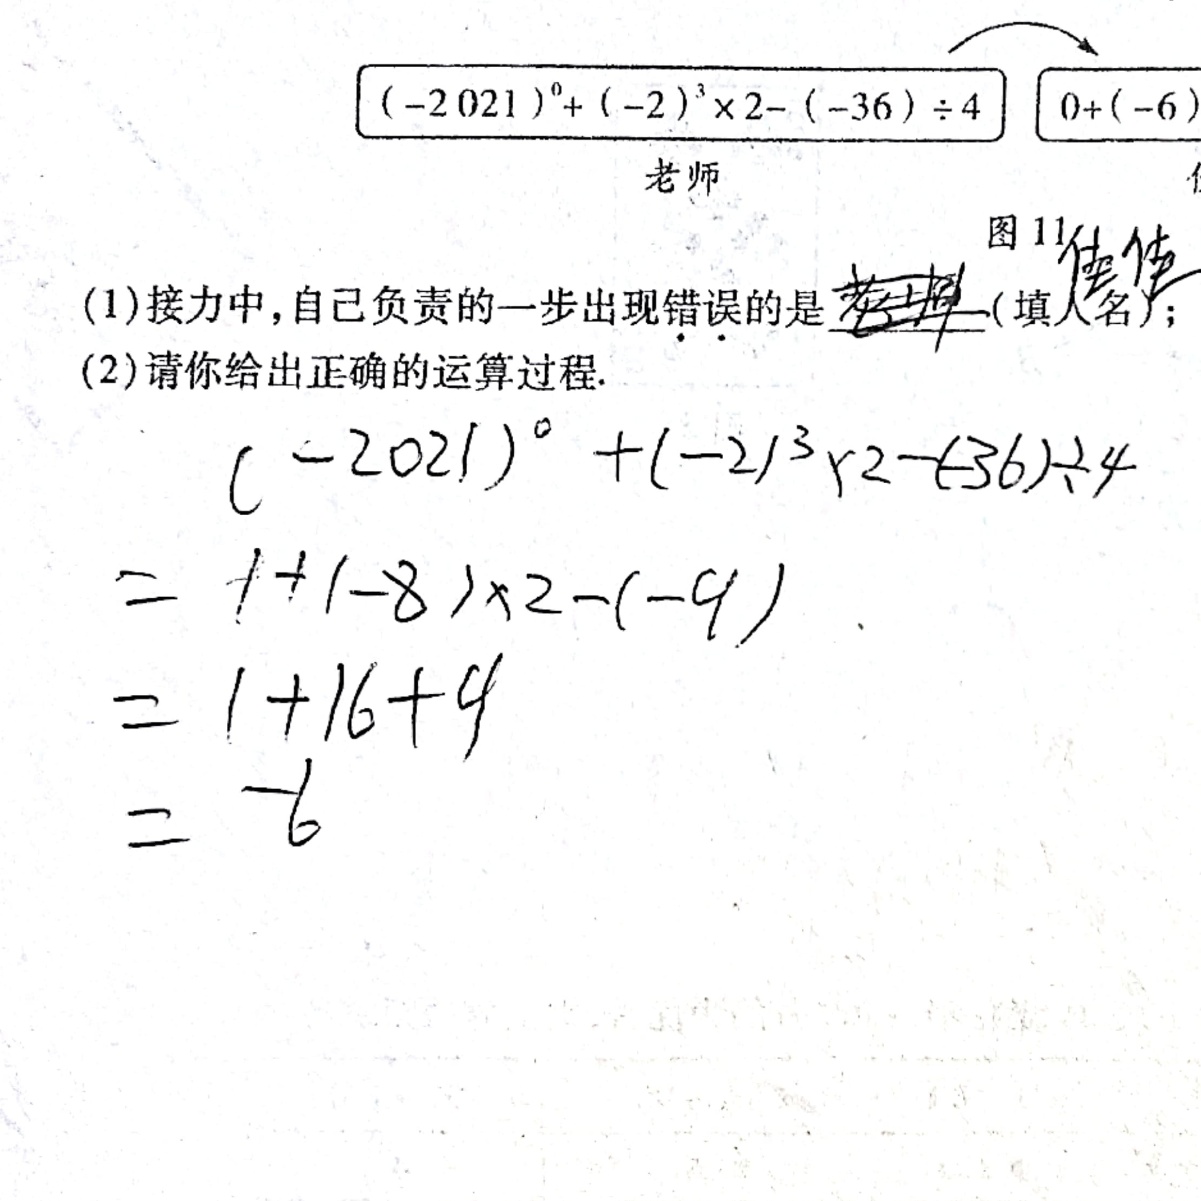 (-2 021)⁰+(-2)³×2-(-36)÷4 0+(-6)
老师
图 11
佳佳
(1)接力中,自己负责的一步出现错误的是 (填人名);
(2)请你给出正确的运算过程.
(-2021)⁰+(-2)³×2-(-36)÷4
= 1+(-8)×2-(-9)
= 1+16+9
= -6